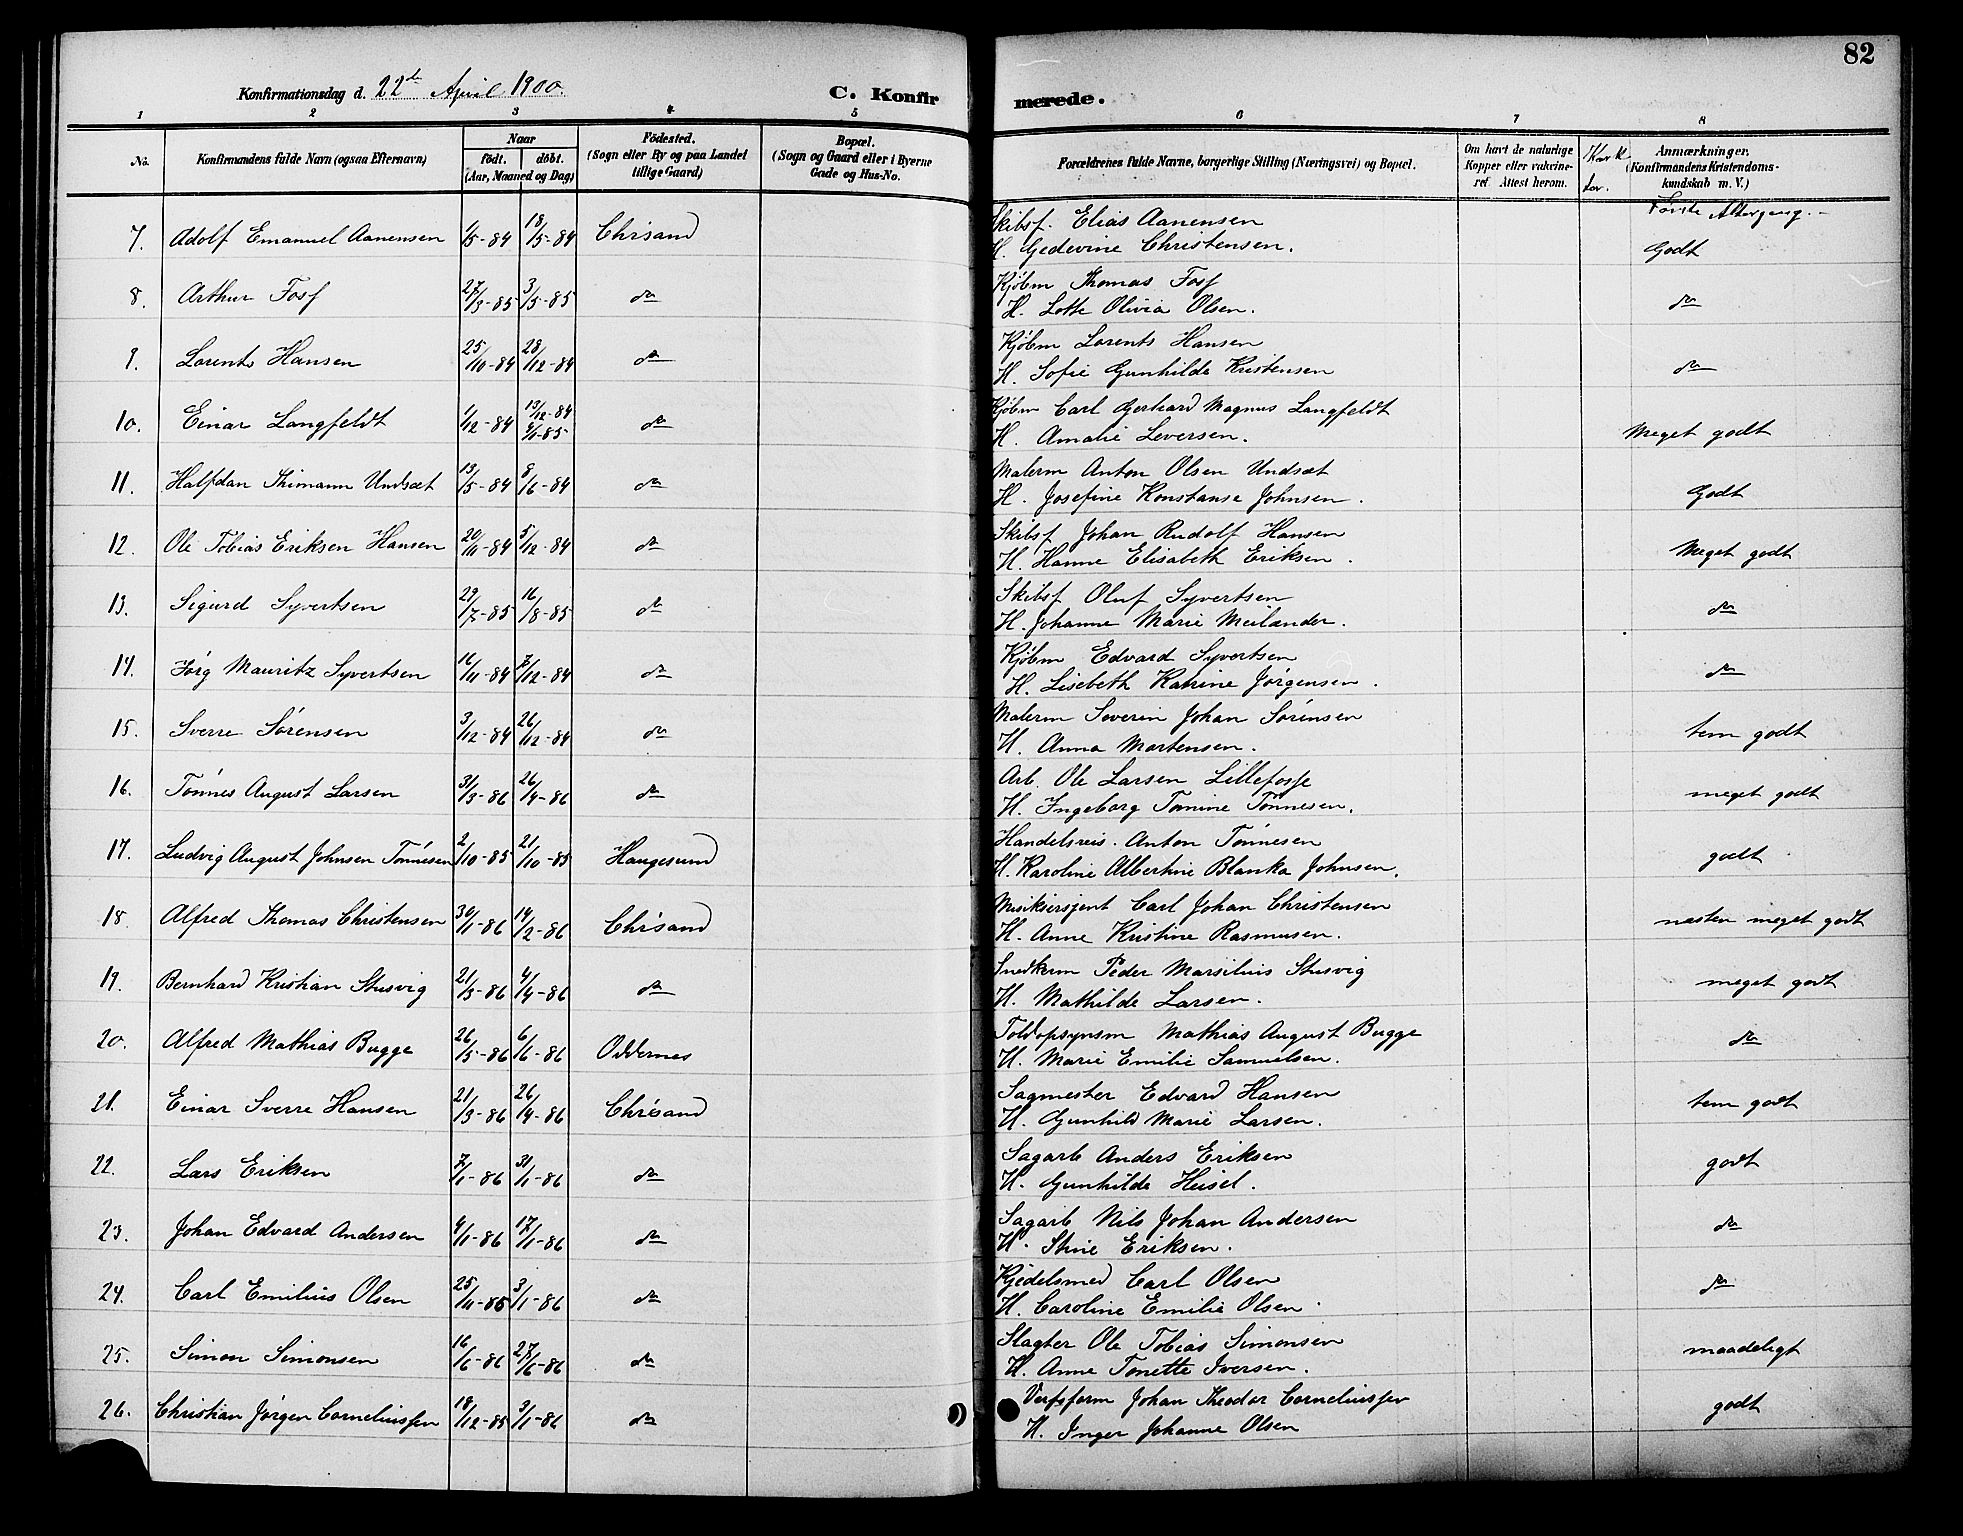 82
Konfirmationsdag d. 22de April 1900.
C. Konfirmerede.
1 2 3 4 5 6 7 8
No. Konfirmandens fulde Navn (ogsaa Efternavn) Naar født. døbt. (Aar, Maaned og Dag) Fødested. (Sogn eller By og paa Landet tillige Gaard) Bopæl. (Sogn og Gaard eller i Byerne Gade og Hus-No.
Forældrenes fulde Navne, borgerlige Stilling (Næringsvei) og Bopæl. Om havt de naturlige Kopper eller vakcineret. Attest herom. Anmærkninger. (Konfirmandens Kristendomskundskab m. V.)
Første Altergang.
7. Adolf Emanuel Aanensen 1/5-84 18/5-84 Chrisand Skibsf. Elias Aanensen
H. Gedevine Christensen. Godt
8. Arthur Fosf 27/3-85 3/5-85 do Kjøbm Thomas Fosf
H. Lotte Olivia Olsen. do
9. Lorents Hansen 25/10-84 28/12-84 do Kjøbm Lorents Hansen
H. Sofie Gunhilde Kristensen do
10. Einar Langfeldt 1/12-84 13/12-84 4/1-85 do Kjøbm Carl Gerhard Magnus Langfeldt
H. Amalie Seversen. Meget godt
11. Halfdan Thimann Undsæt 13/5-84 8/6-84 do Malerm Anton Olsen Undsæt
H. Josefine Konstanse Johnsen. Godt
12. Ole Tobias Eriksen Hansen 20/11-84 5/12-84 do Skibsf Johan Rudolf Hansen
H. Hanne Elisabeth Eriksen. Meget godt
13. Sigurd Syvertsen 29/7-85 16/8-85 do Skibsf Oluf Syvertsen
H. Johanne Marie Meilænder. do
14. Jørg Mauritz Syvertsen 16/11-84 7/12-84 do Kjøbm Edvard Syvertsen
H. Lisebeth Katrine Jørgensen. do
15. Sverre Sørensen 3/12-84 26/12-84 do Malerm Severin Johan Sørensen
H. Anna Mortensen. tem godt
16. Tønnes August Larsen 31/3-86 26/4-86 do Arb. Ole Larsen Lillefosse
H. Ingeborg Tomine Tønnesen. meget godt
17. Ludvig August Johnsen Tønnesen 2/10-85 21/10-85 Haugesund Handelsreis. Anton Tønnesen
H. Karoline Albertine Blanka Johnsen. godt
18. Alfred Thomas Christensen 30/1-86 14/2-86 Chrisand Musiksersjent Carl Johan Christensen
H. Anne Kristine Rasmusen. næsten meget godt
19. Bernhard Kristian Stusvig 21/3-86 4/4-86 do Snedkerm Peder Marsilius Stusvig
H. Mathilde Larsen. meget godt
20. Alfred Mathias Bugge 26/5-86 6/6-86 Oddernes Toldopsynsm Mathias August Bugge
H. Marie Emilie Samuelsen. do
21. Einar Sverre Hansen 21/3-86 26/4-86 Chrisand Sagmester Edvard Hansen
H. Gunhild Marie Larsen. tem godt
22. Lars Eriksen 7/1-86 31/1-86 do Sagarb Anders Eriksen
H. Gunhilde Heisel. godt
23. Johan Edvard Andersen 4/1-86 17/1-86 do Sagarb Nils Johan Andersen
H. Stine Eriksen. do
24. Carl Emilius Olsen 25/11-85 3/1-86 do Kjedelsmed Carl Olsen
H. Caroline Emilie Olsen. do
25. Simon Simonsen 16/6-86 27/6-86 do Slagter Ole Tobias Simonsen
H. Anne Tonette Iversen. maadeligt
26. Christian Jørgen Corneliussen 18/12-85 3/1-86 do Verfsform Johan Theodor Corneliussen
H. Inger Johanne Olsen godt